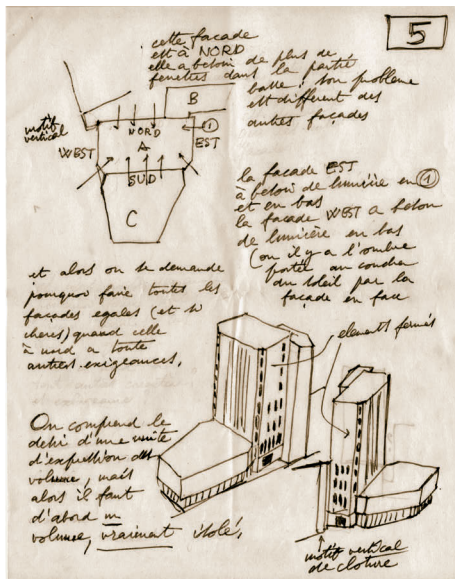 5
cette facade
est à NORD
elle a beloin de plus de
fenetres dans la partie
basse : son probleme
est different des
autres façades
B
motif
vertical
NORD
1
WEST
A
EST
SUD
C
la facade EST
à beloin de lumière en 1
et en bas
la facade WEST a beloin
de lumière en bas
(ou il y a l'ombre
portée au coucher
du soleil par la
façade en face
et alors on se demande
pourquoi faire toutes les
façades egales (et si
cheres) quand celle
à nord a toute
autres exigeances,
elements fermés
On comprend le
desir d'une unité
d'expression des
volume, mais
alors il faut
d'abord un
volume, vraiment isolé,
motif vertical
de cloture